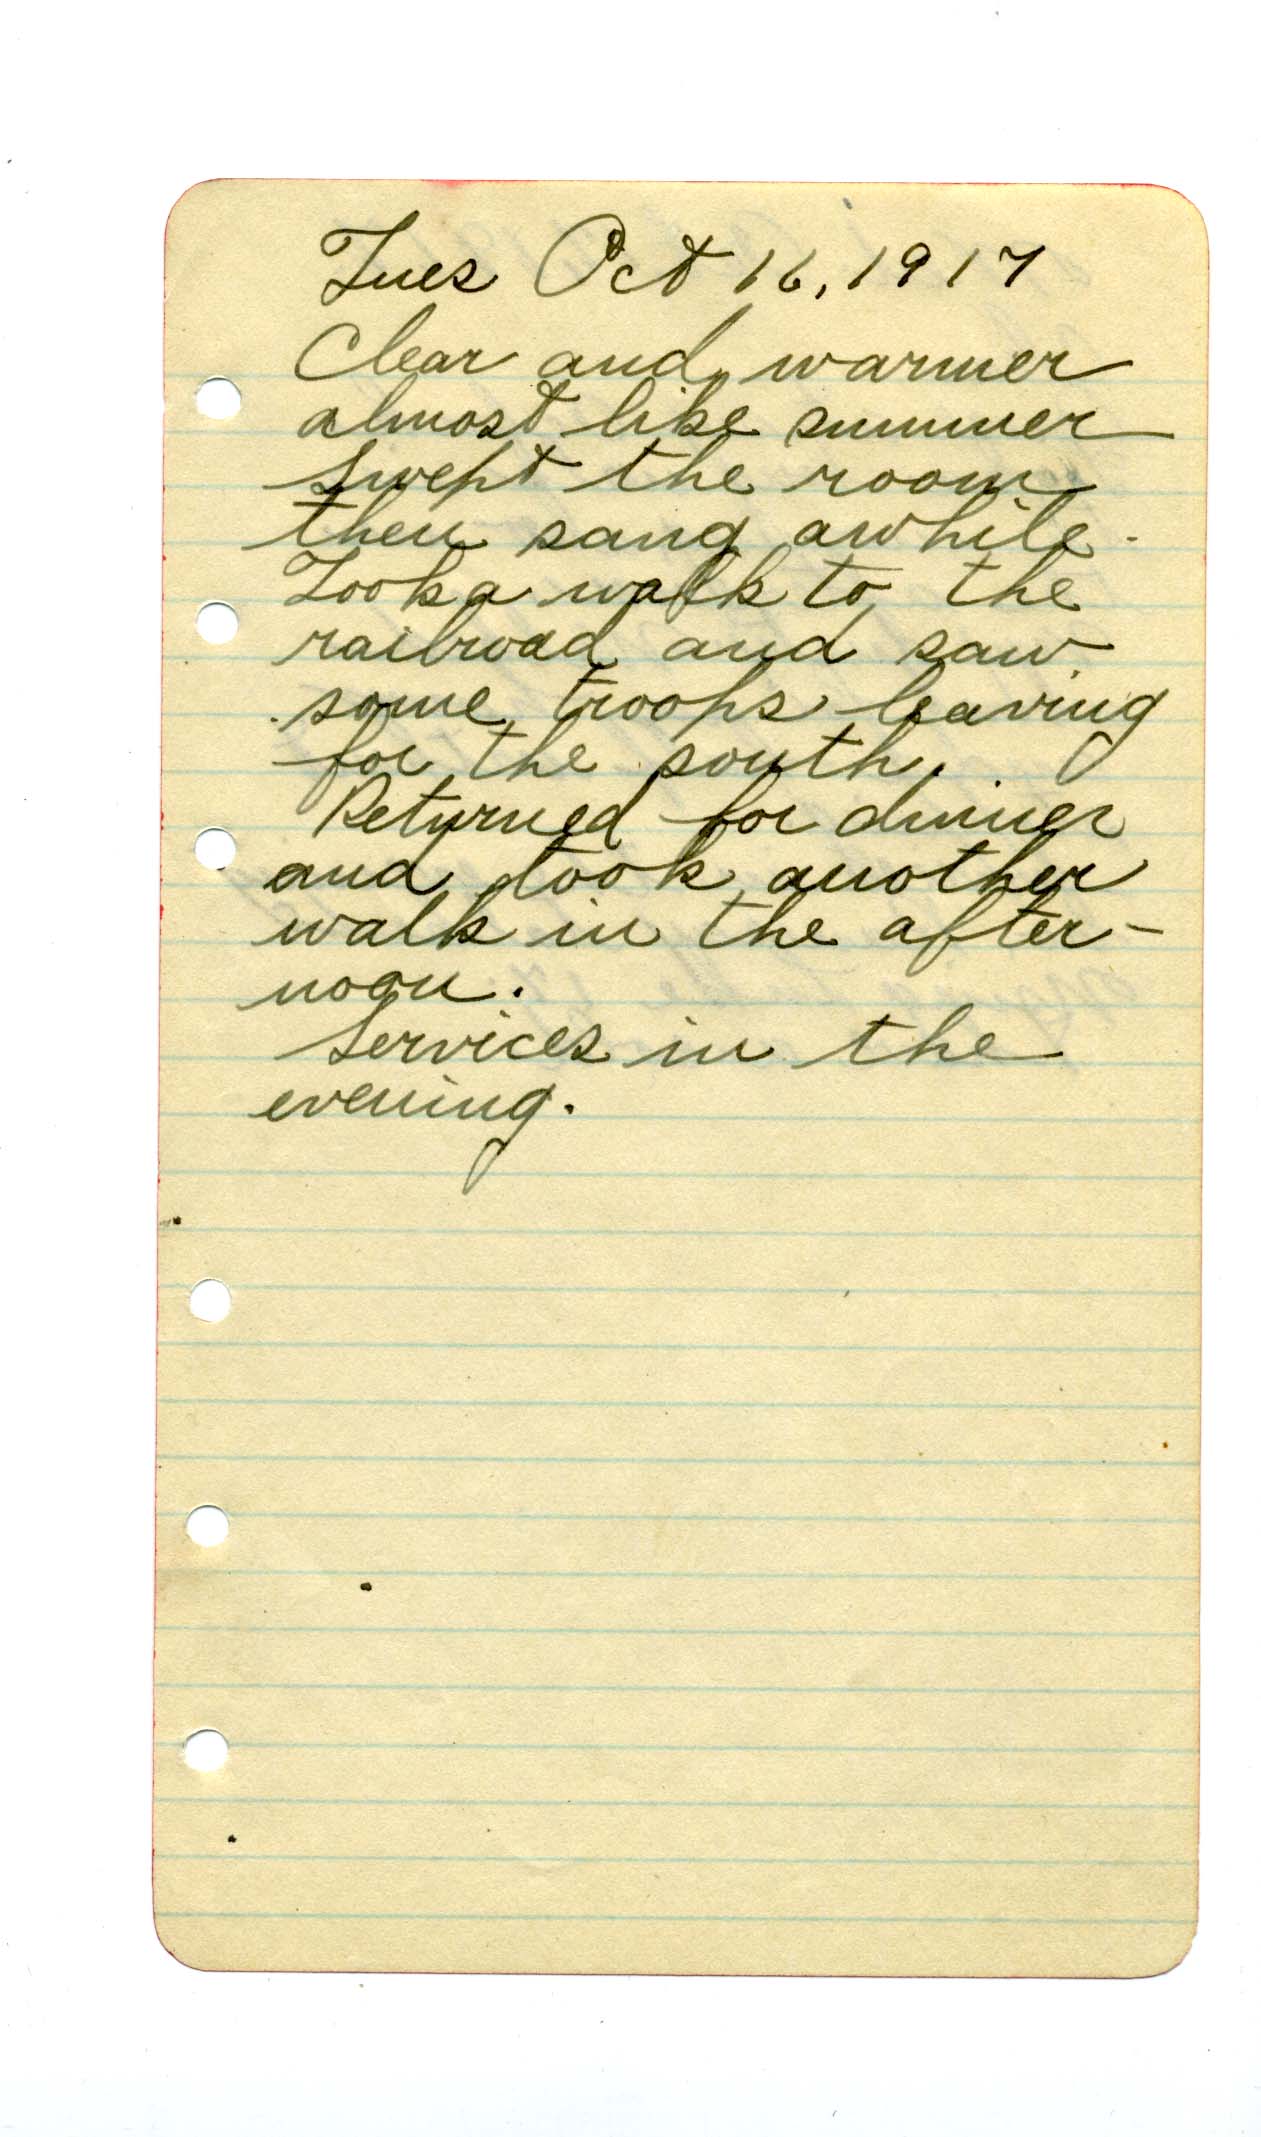 Tues Oct 16, 1917
Clear and warmer
almost like summer
Swept the room
then sang awhile.
Took a walk to the
railroad and saw
some troops leaving
for the south.
Returned for dinner
and took another
walk in the after-
noon.
Services in the
evening.